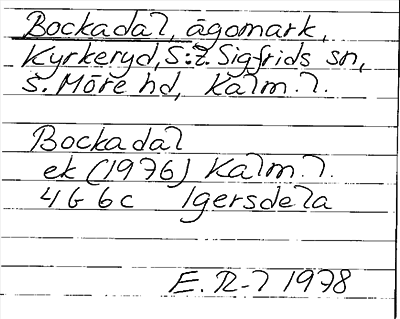 Bockadal, ägomark,
Kyrkeryd, S:t Sigfrids sn,
S. Möre hd, Kalm. l.
Bockadal
ek (1976) Kalm. l.
4 G 6 c Igersdela
E. R-l 1978